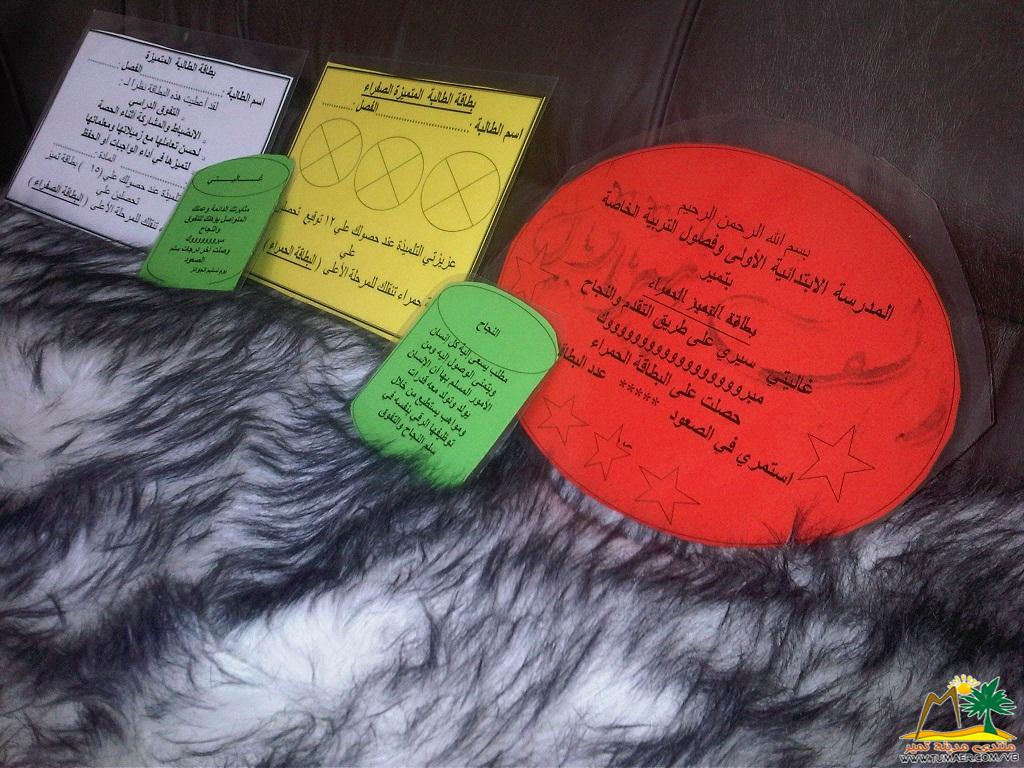 بطاقة الطالبة المتميزة
اسم الطالبة :.....................الفصل :...............
لقد أعطيت هذه البطاقة نظرا لـ :
التفوق الدراسي
الانضباط والمشاركة أثناء الحصة
لحسن تعاملها مع زميلاتها ومعلماتها
لتميزها في أداء الواجبات أو الحفظ
المادة:
تلميذة عند حصولك على (١٥ ) بطاقة تميز
تحصلين على
تنقلك للمرحلة الأعلى ( البطاقة الصفراء )
غـــالـيـتـي
مثابرتك الدائمة وعملك
المتواصل يؤهلك للتفوق
والنجاح
مبروووووووك
وصلت آخر درجات سلم
الصعود
يوم تسليم الجوائز
بطاقة الطالبة المتميزة الصفراء
اسم الطالبة :.....................الفصل :...............
عزيزتي التلميذة عند حصولك على ١٢ توقيع تحصلين
على
حمراء تنقلك للمرحلة الأعلى ( البطاقة الحمراء )
النجاح
مطلب يسعى اليه كل انسان
ويتمنى الوصول اليه ومن
الأمور المسلم بها أن الانسان
يولد وتولد معه قدرات
ومواهب يستطيع من خلال
توظيفها الرقي بنفسه في
سلم النجاح والتفوق
بسم الله الرحمن الرحيم
المدرسة الابتدائية الأولى وفصول التربية الخاصة
بتمير
بطاقة التميز الحمراء
غاليتي سيري على طريق التقدم والنجاح
مبروووووووووووووووووك
حصلت على البطاقة الحمراء
استمري في الصعود ***** عدد البطا
منتدى مدينة تمير
WWW.TUMAER.COM/VB